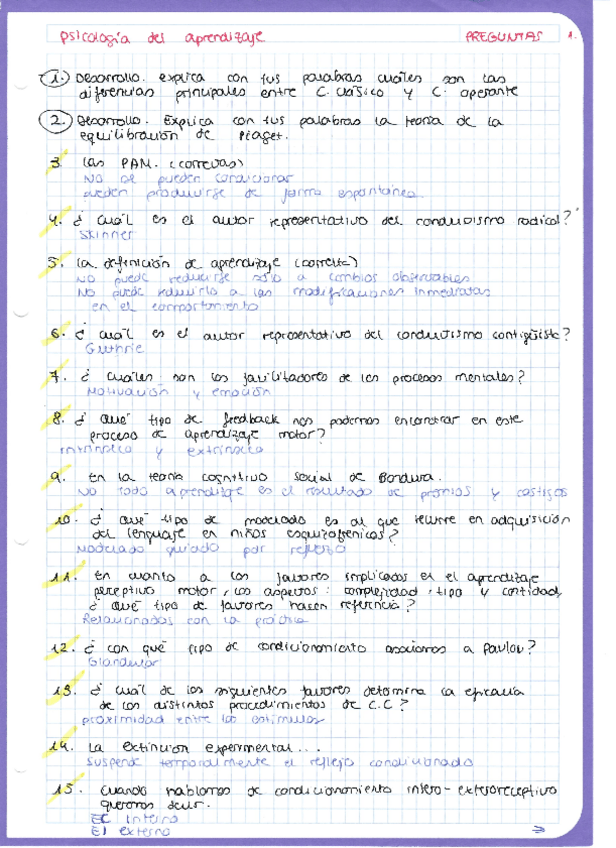 psicología del aprendizaje PREGUNTAS 1.
1. Desarrollo. explica con tus palabras cuáles son las
diferencias principales entre C. clásico y C. operante
2. Desarrollo. Explica con tus palabras la teoría de la
equilibración de Piaget.
3. Las PAM. (correctas)
NO se pueden condicionar
pueden producirse de forma espontánea
4. ¿ Cuál es el autor representativo del conductismo radical?
Skinner
5. La definición de aprendizaje (correcta)
NO puede reducirse sólo a cambios observables
No puede reducirlo a las modificaciones inmediatas
en el comportamiento
6. ¿ cuál es el autor representativo del conductismo contigüista?
Guthrie
7. ¿ cuáles son los facilitadores de los procesos mentales?
Motivación y emoción
8. ¿ Qué tipo de feedback nos podemos encontrar en este
proceso de aprendizaje motor?
intrínseco y extrínseco
9. En la teoría cognitivo social de Bandura.
NO todo aprendizaje es el resultado de premios y castigos
10. ¿ Qué tipo de modelado es al que recurre en adquisición
del lenguaje en niños esquizofrénicos?
Modelado guiado por refuerzo
11. En cuanto a los factores implicados en el aprendizaje
perceptivo motor, los aspectos: complejidad, tipo y cantidad,
¿ Qué tipo de factores hacen referencia?
Relacionados con la práctica
12. ¿ con qué tipo de condicionamiento asociamos a Pavlov?
Glandular
13. ¿ cuál de los siguientes factores determina la eficacia
de los distintos procedimientos de C.C?
proximidad entre los estímulos
14. La extinción experimental...
Suspende temporalmente el reflejo condicionado
15. Cuando hablamos de condicionamiento intero-exteroceptivo
queremos decir.
EC interno
EI externo